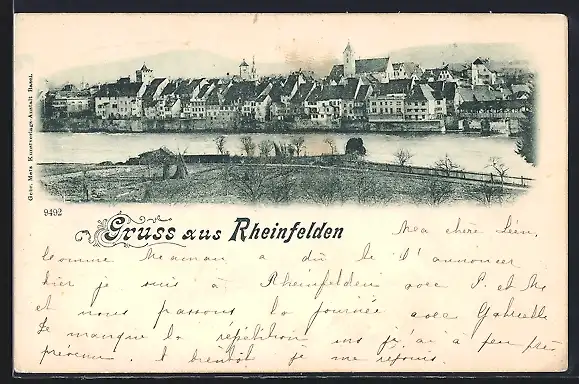 Gebr. Metz Kunstverlags-Anstalt Basel.
9492
Gruss aus Rheinfelden
Ma chère Léon,
Comme Maman a dû te l'annoncer
hier je suis à Rheinfelden avec P. et M.
et nous passons la journée avec Gabrielle
Je manque la répétition mais j'ai à peu près
prévenu. A bientôt je me réjouis.